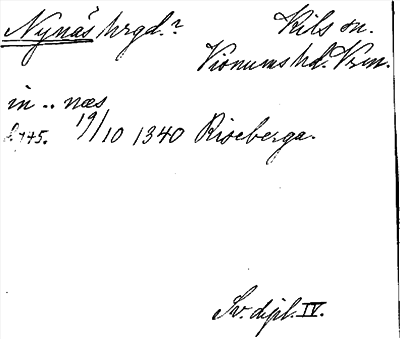 Nynäs hrgd.? Kils sn.
Visnums hd. Vrm.
in .. næs
19/10 1340 Riseberga.
Sv. dipl. IV.